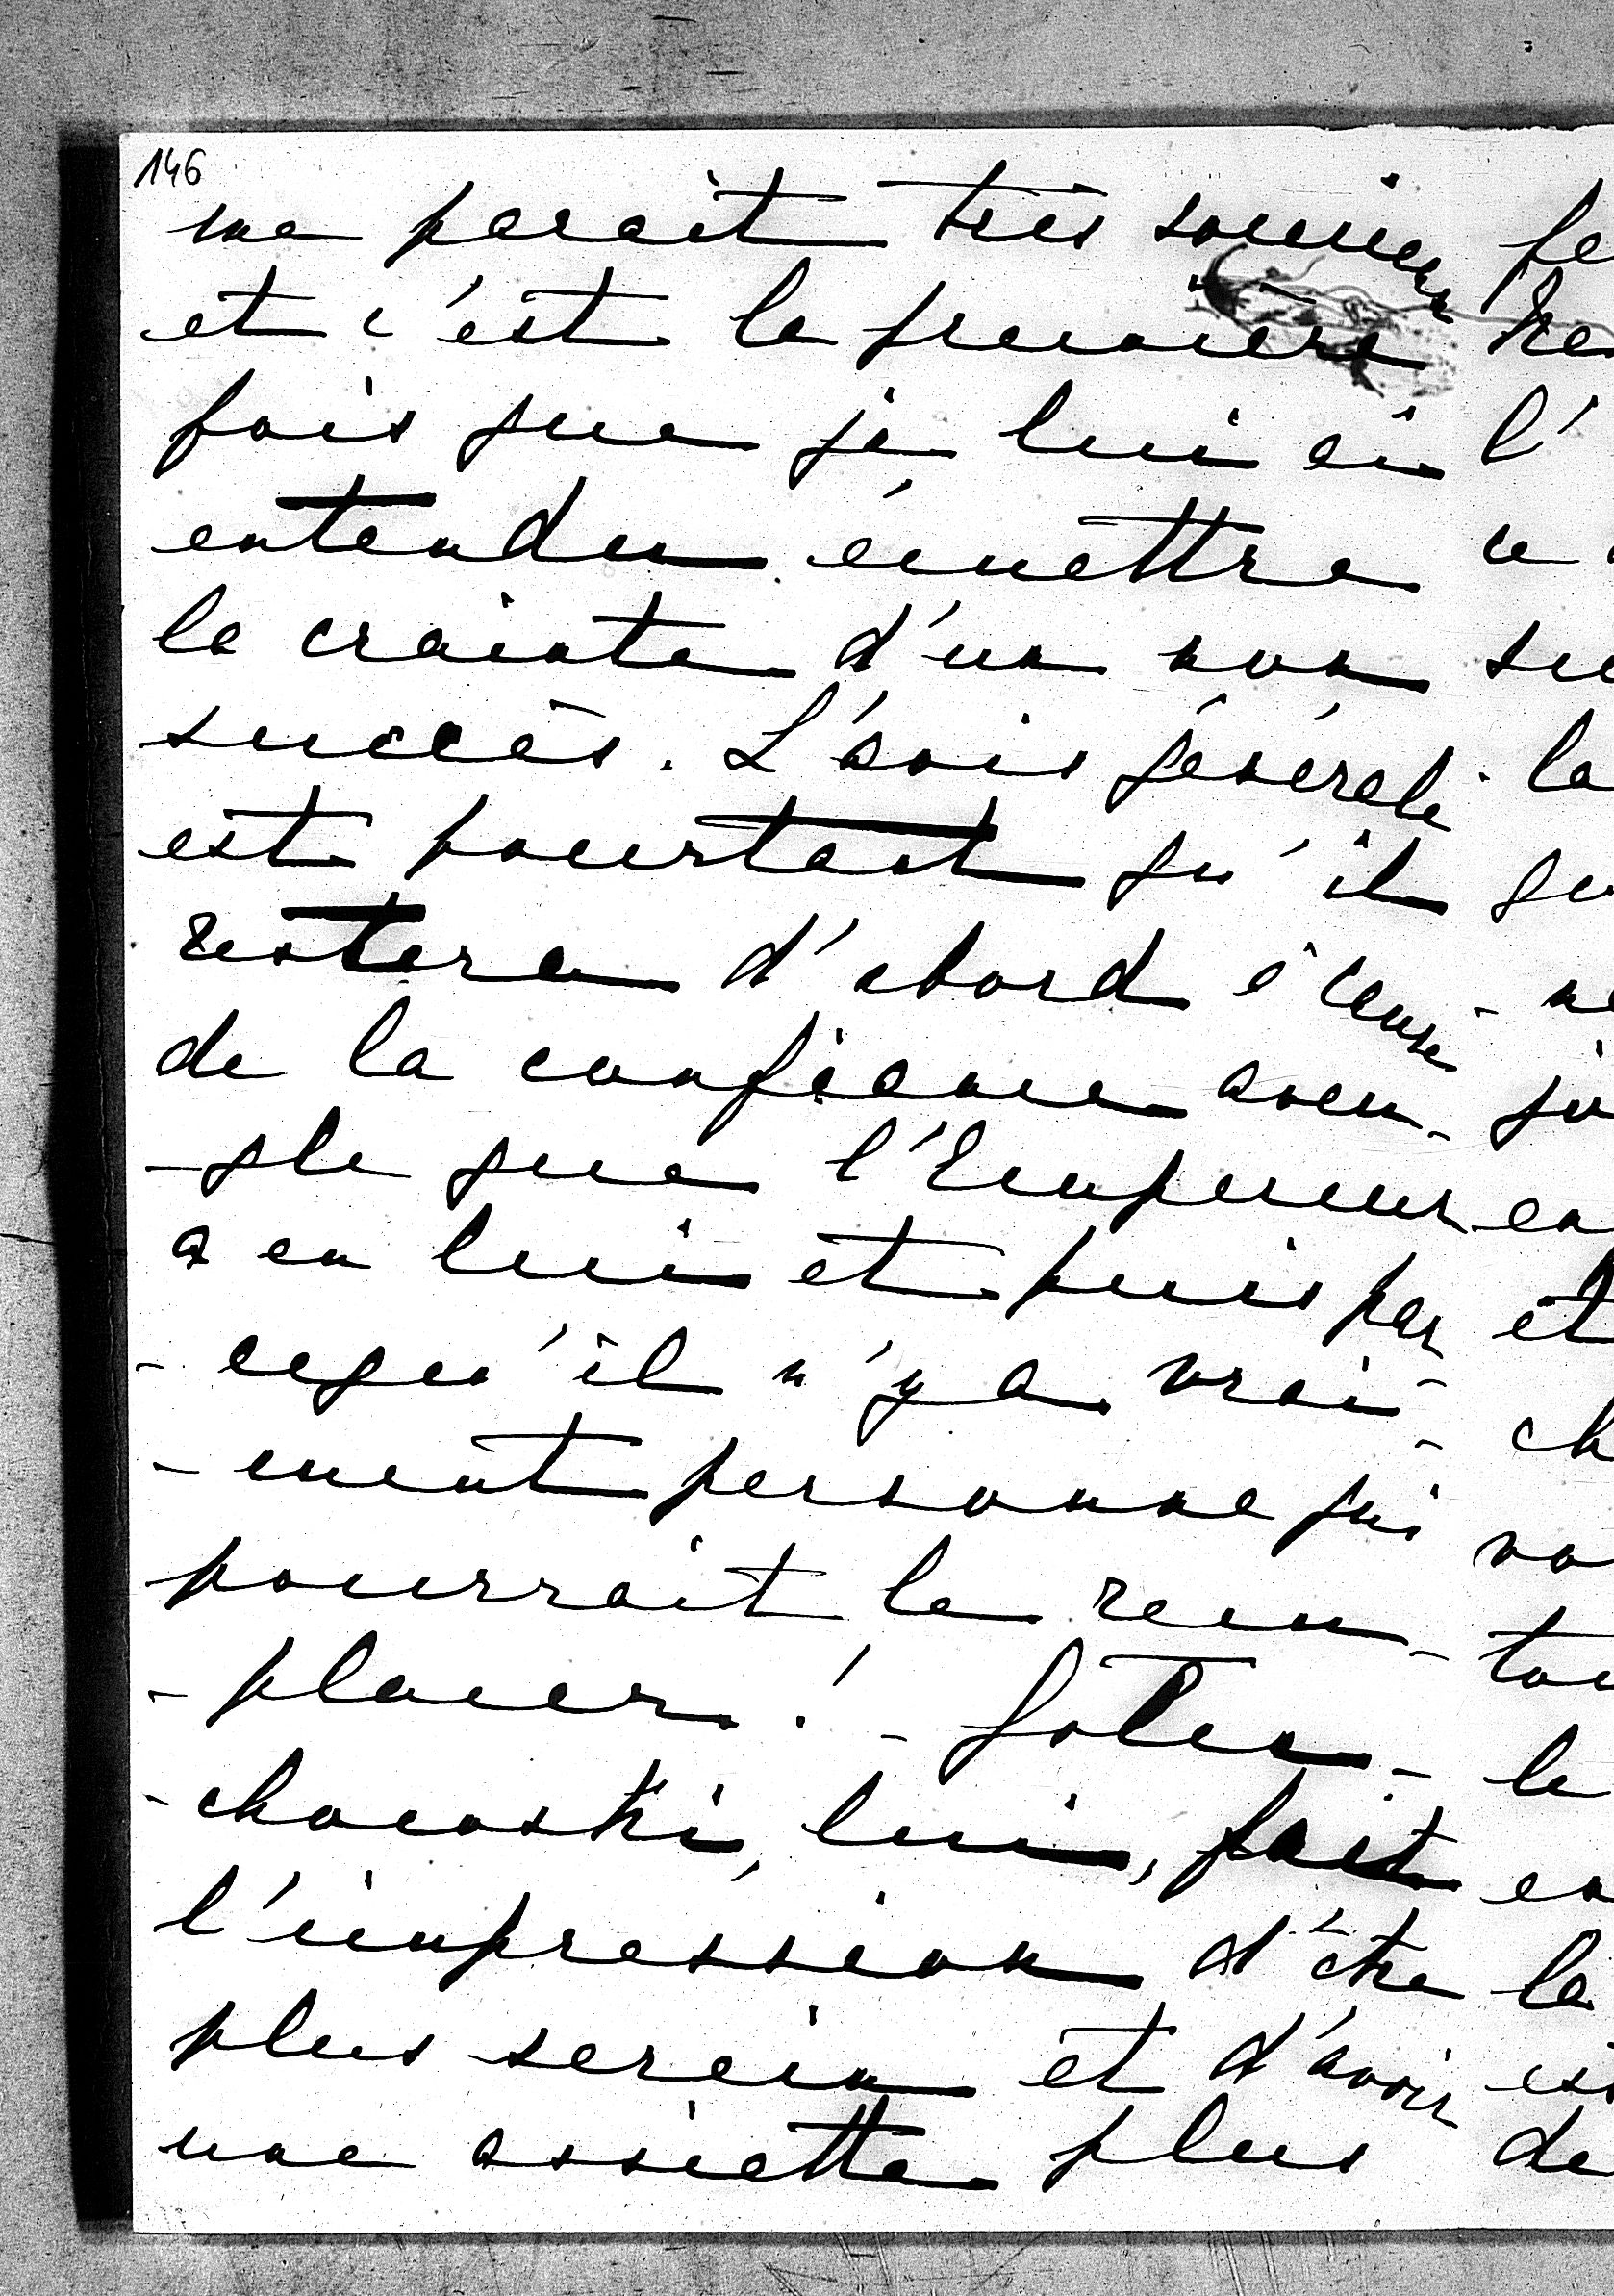 146
me parait très soucieux
et c'est la première
fois que je lui ai
entendu émettre
la crainte d'un non
succès. L'avis général
est pourtant qu'il
restera d'abord à cause
de la confiance aveu-
-gle que l'Empereur
a en lui et puis par
- cequ'il n'y a vrai-
- ment personne qui
pourrait le rem-
- placer! - Goluchowski
- chowski, lui, fait
l'impression d'être
plus serein et d'avoir
une assiette plus